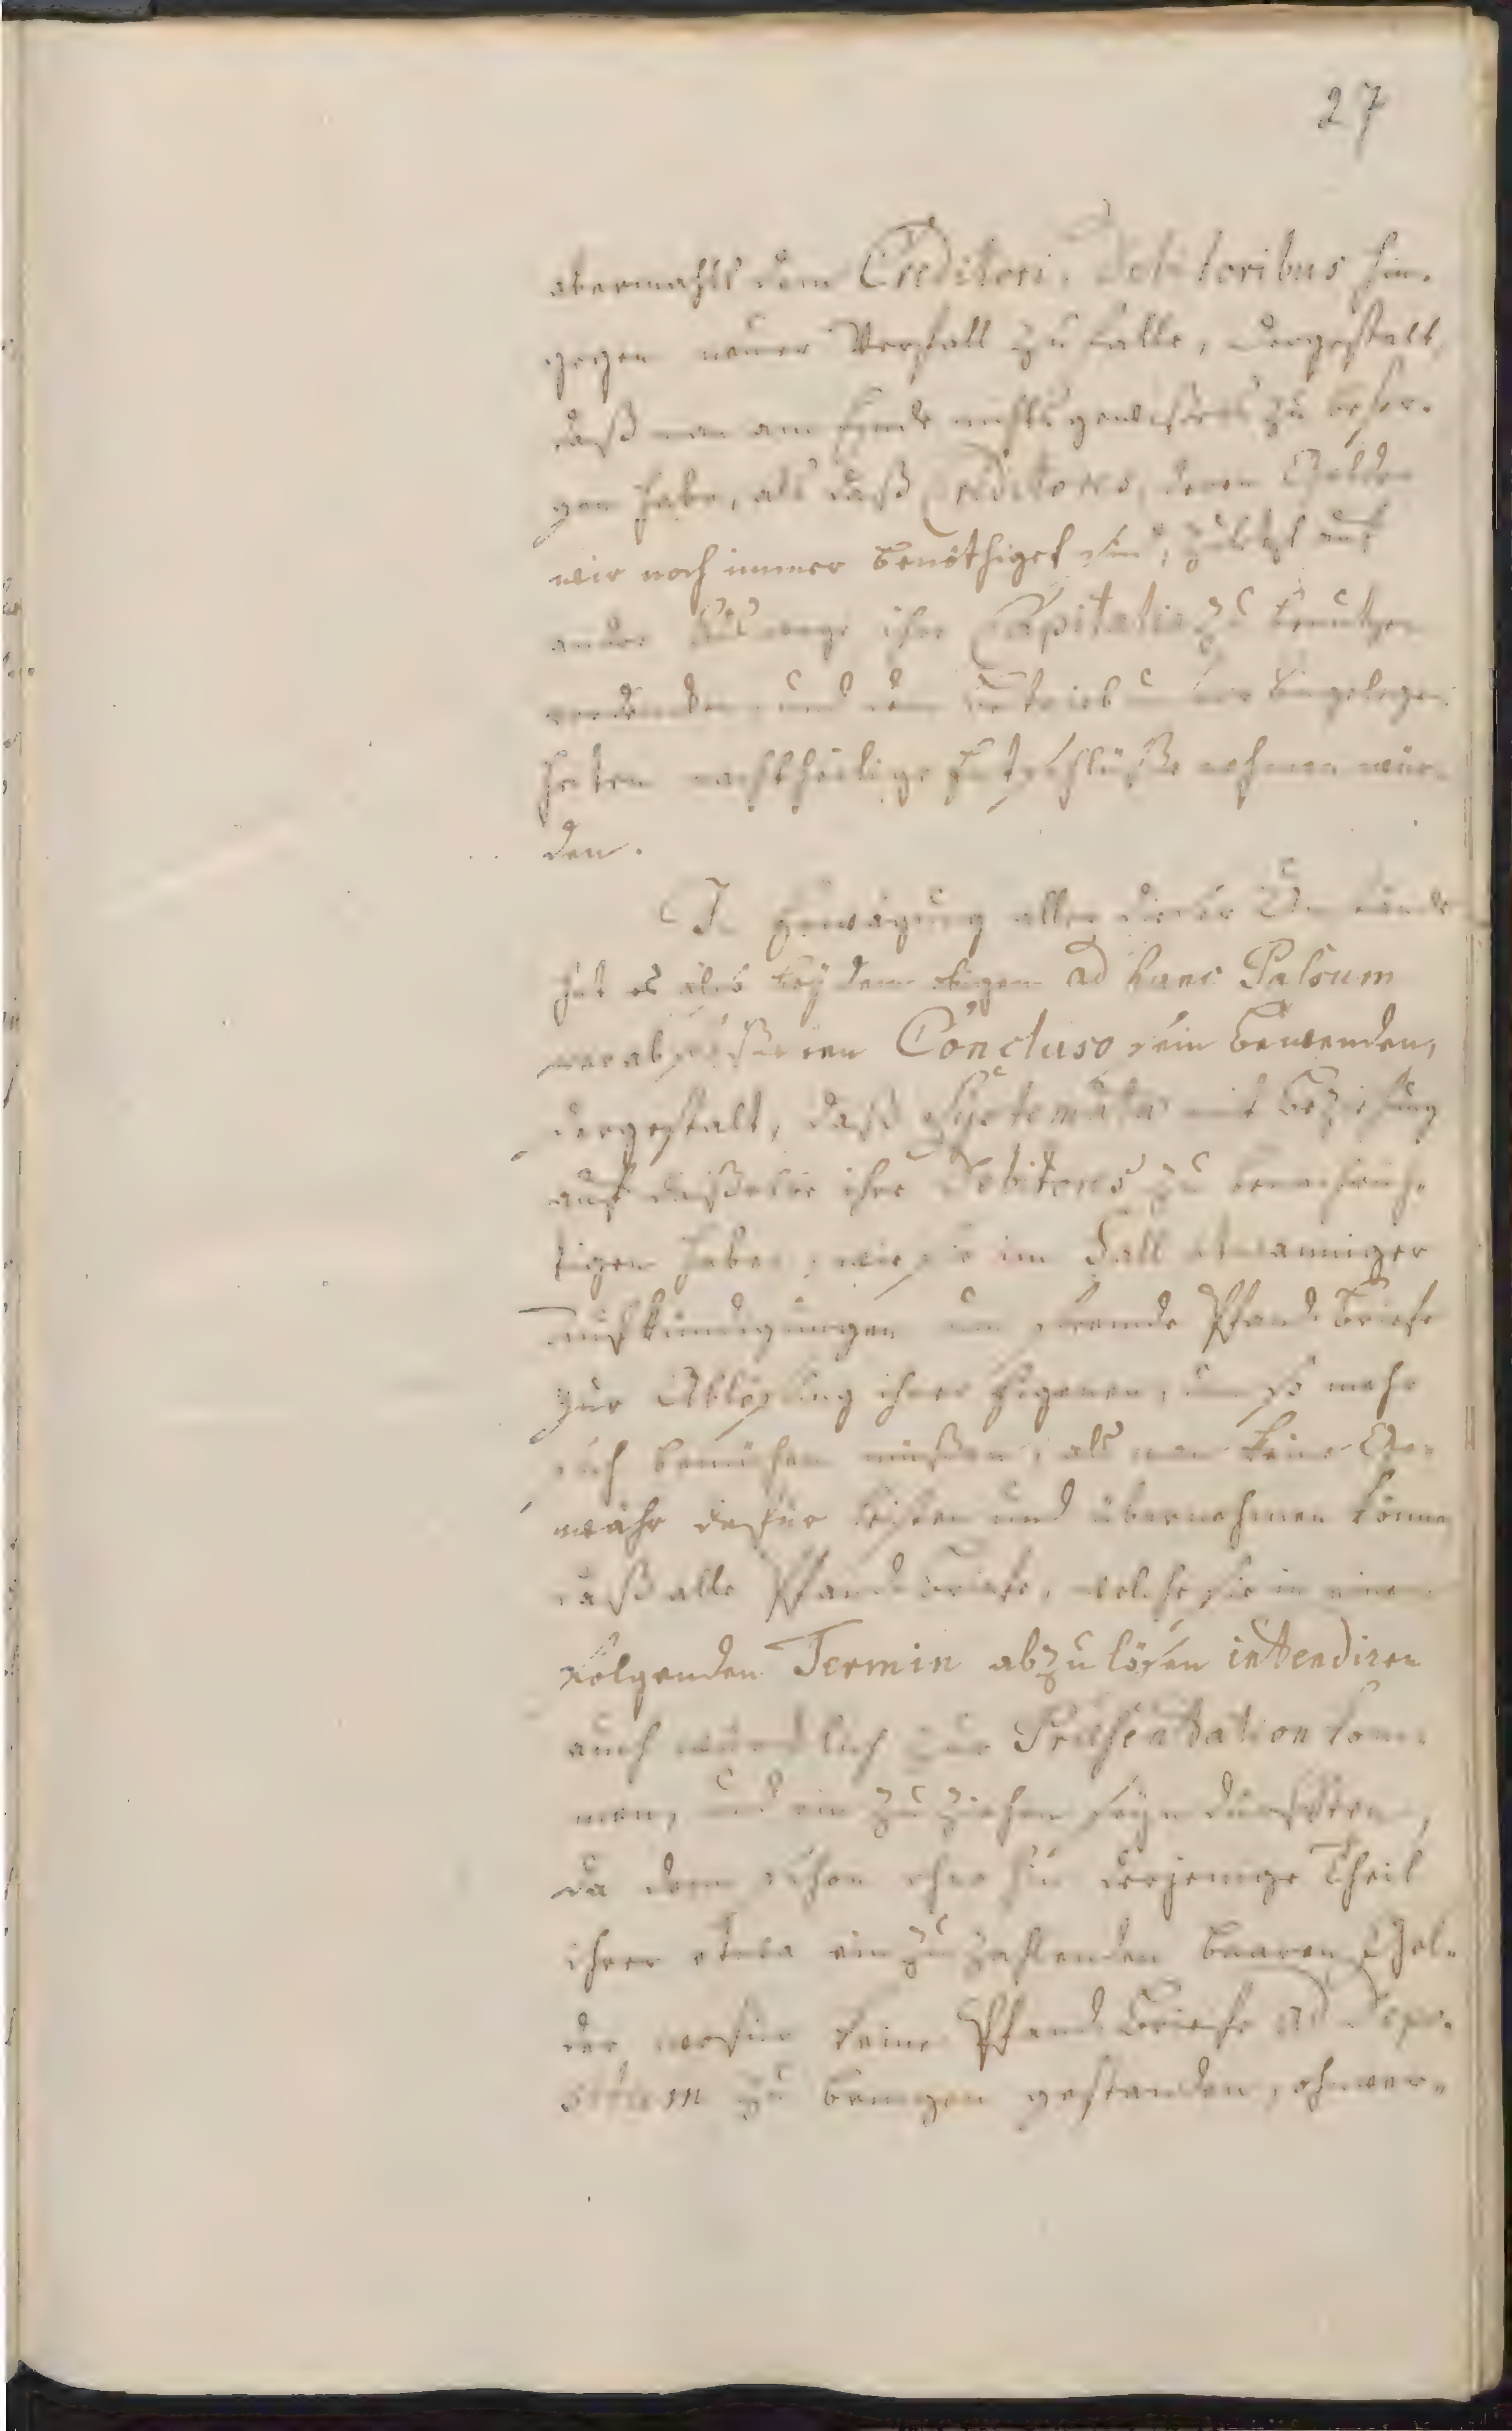 27
abermahls dem Creditori, Debitoribus hin-
gegen neuer Verfall zu falle, dergestalt,
daß man am Ende nichts gewißeres zu besor-
gen habe, als daß Creditores, deren Gelder
wir noch immer benöthiget sind, zuletzt auf
andre Auswege ihre Capitalia zu benutzen
und dem unserer Angelegen-
heiten nachtheilige Entschlüße nehmen wür-
den.
In Erwägung aller dieser Umstände
hat es also bey dem obigen ad hunc Passum
verabfaßeten Concluso sein Bewenden,
dergestalt, daß Systemata mit Beziehung
auf daßelbe ihre Debitores zu benachrich-
tigen haben, wie sie im Fall etwanniger
Aufkündigungen um fremde Pfand Briefe
zur Ablösung ihrer Eigenen, um so mehr
sich bemühen müßen, als man keine Ge-
währ dafür leisten und übernehmen könne
daß alle Pfand Briefe, welche sie in einem
folgenden Termin abzulösen intendiren
auch würcklich zur Präsentation kom-
men, und ein zu ziehen seyn dürfften,
da denn schon ohne hin derjenige Theil
ihrer etwa ein zu zahlenden baaren Gel-
der, wofür keine Pfand Briefe ad Depo-
situm zu bringen gestanden, ohnver-